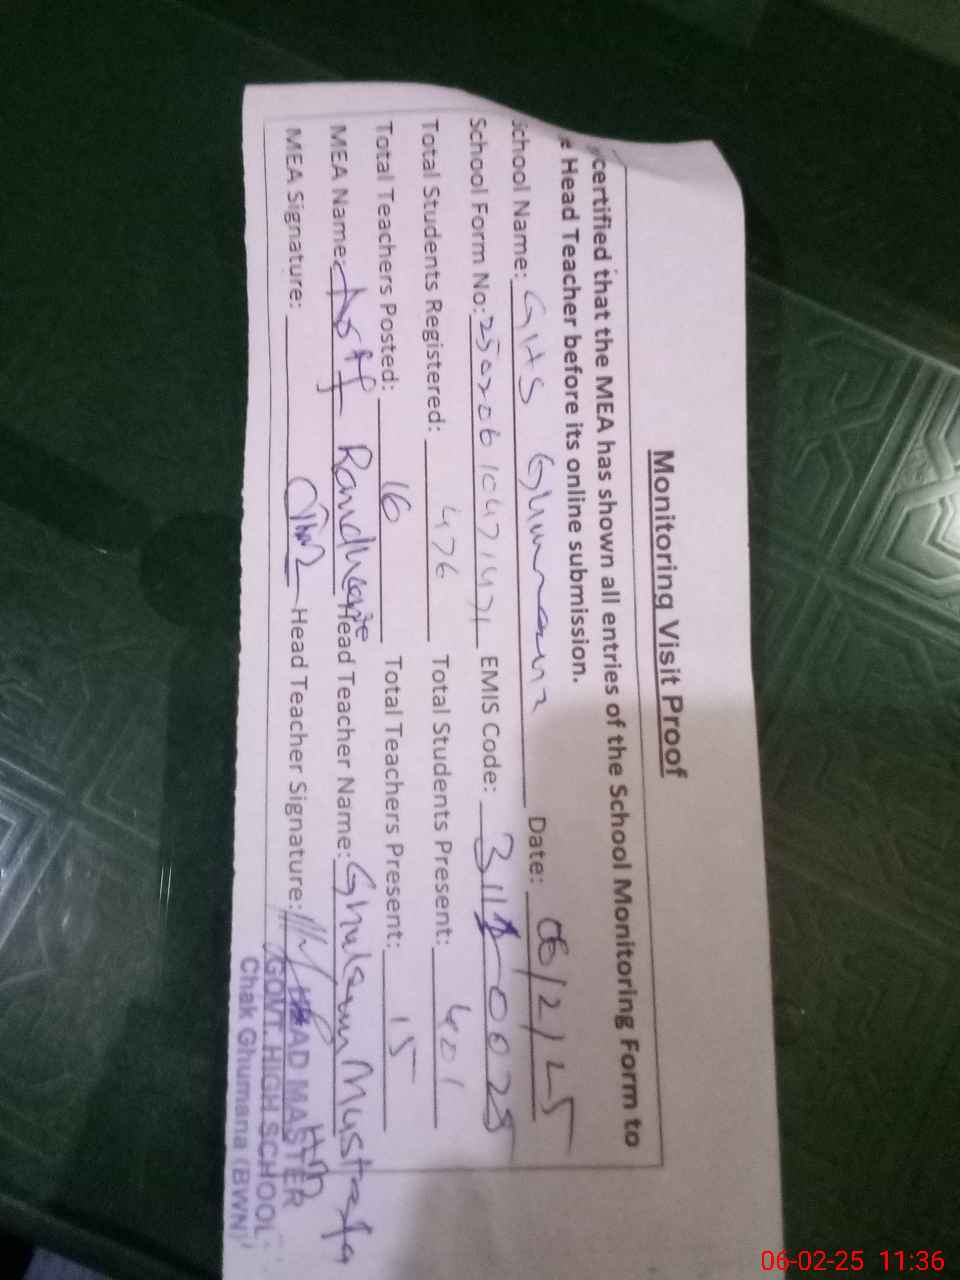 Monitoring Visit Proof
certified that the MEA has shown all entries of the School Monitoring Form to
Head Teacher before its online submission.
School Name: GHS Ghumana Date: 06/2/25
School Form No: EMIS Code: 3111-0028
Total Students Registered: 476 Total Students Present: 401
Total Teachers Posted: 16 Total Teachers Present: 15
MEA Name: Randhawa Head Teacher Name: Ghulam Mustafa
MEA Signature: Head Teacher Signature:
HEAD MASTER
GOVT. HIGH SCHOOL
Chak Ghumana (BWN)
06-02-25 11:36